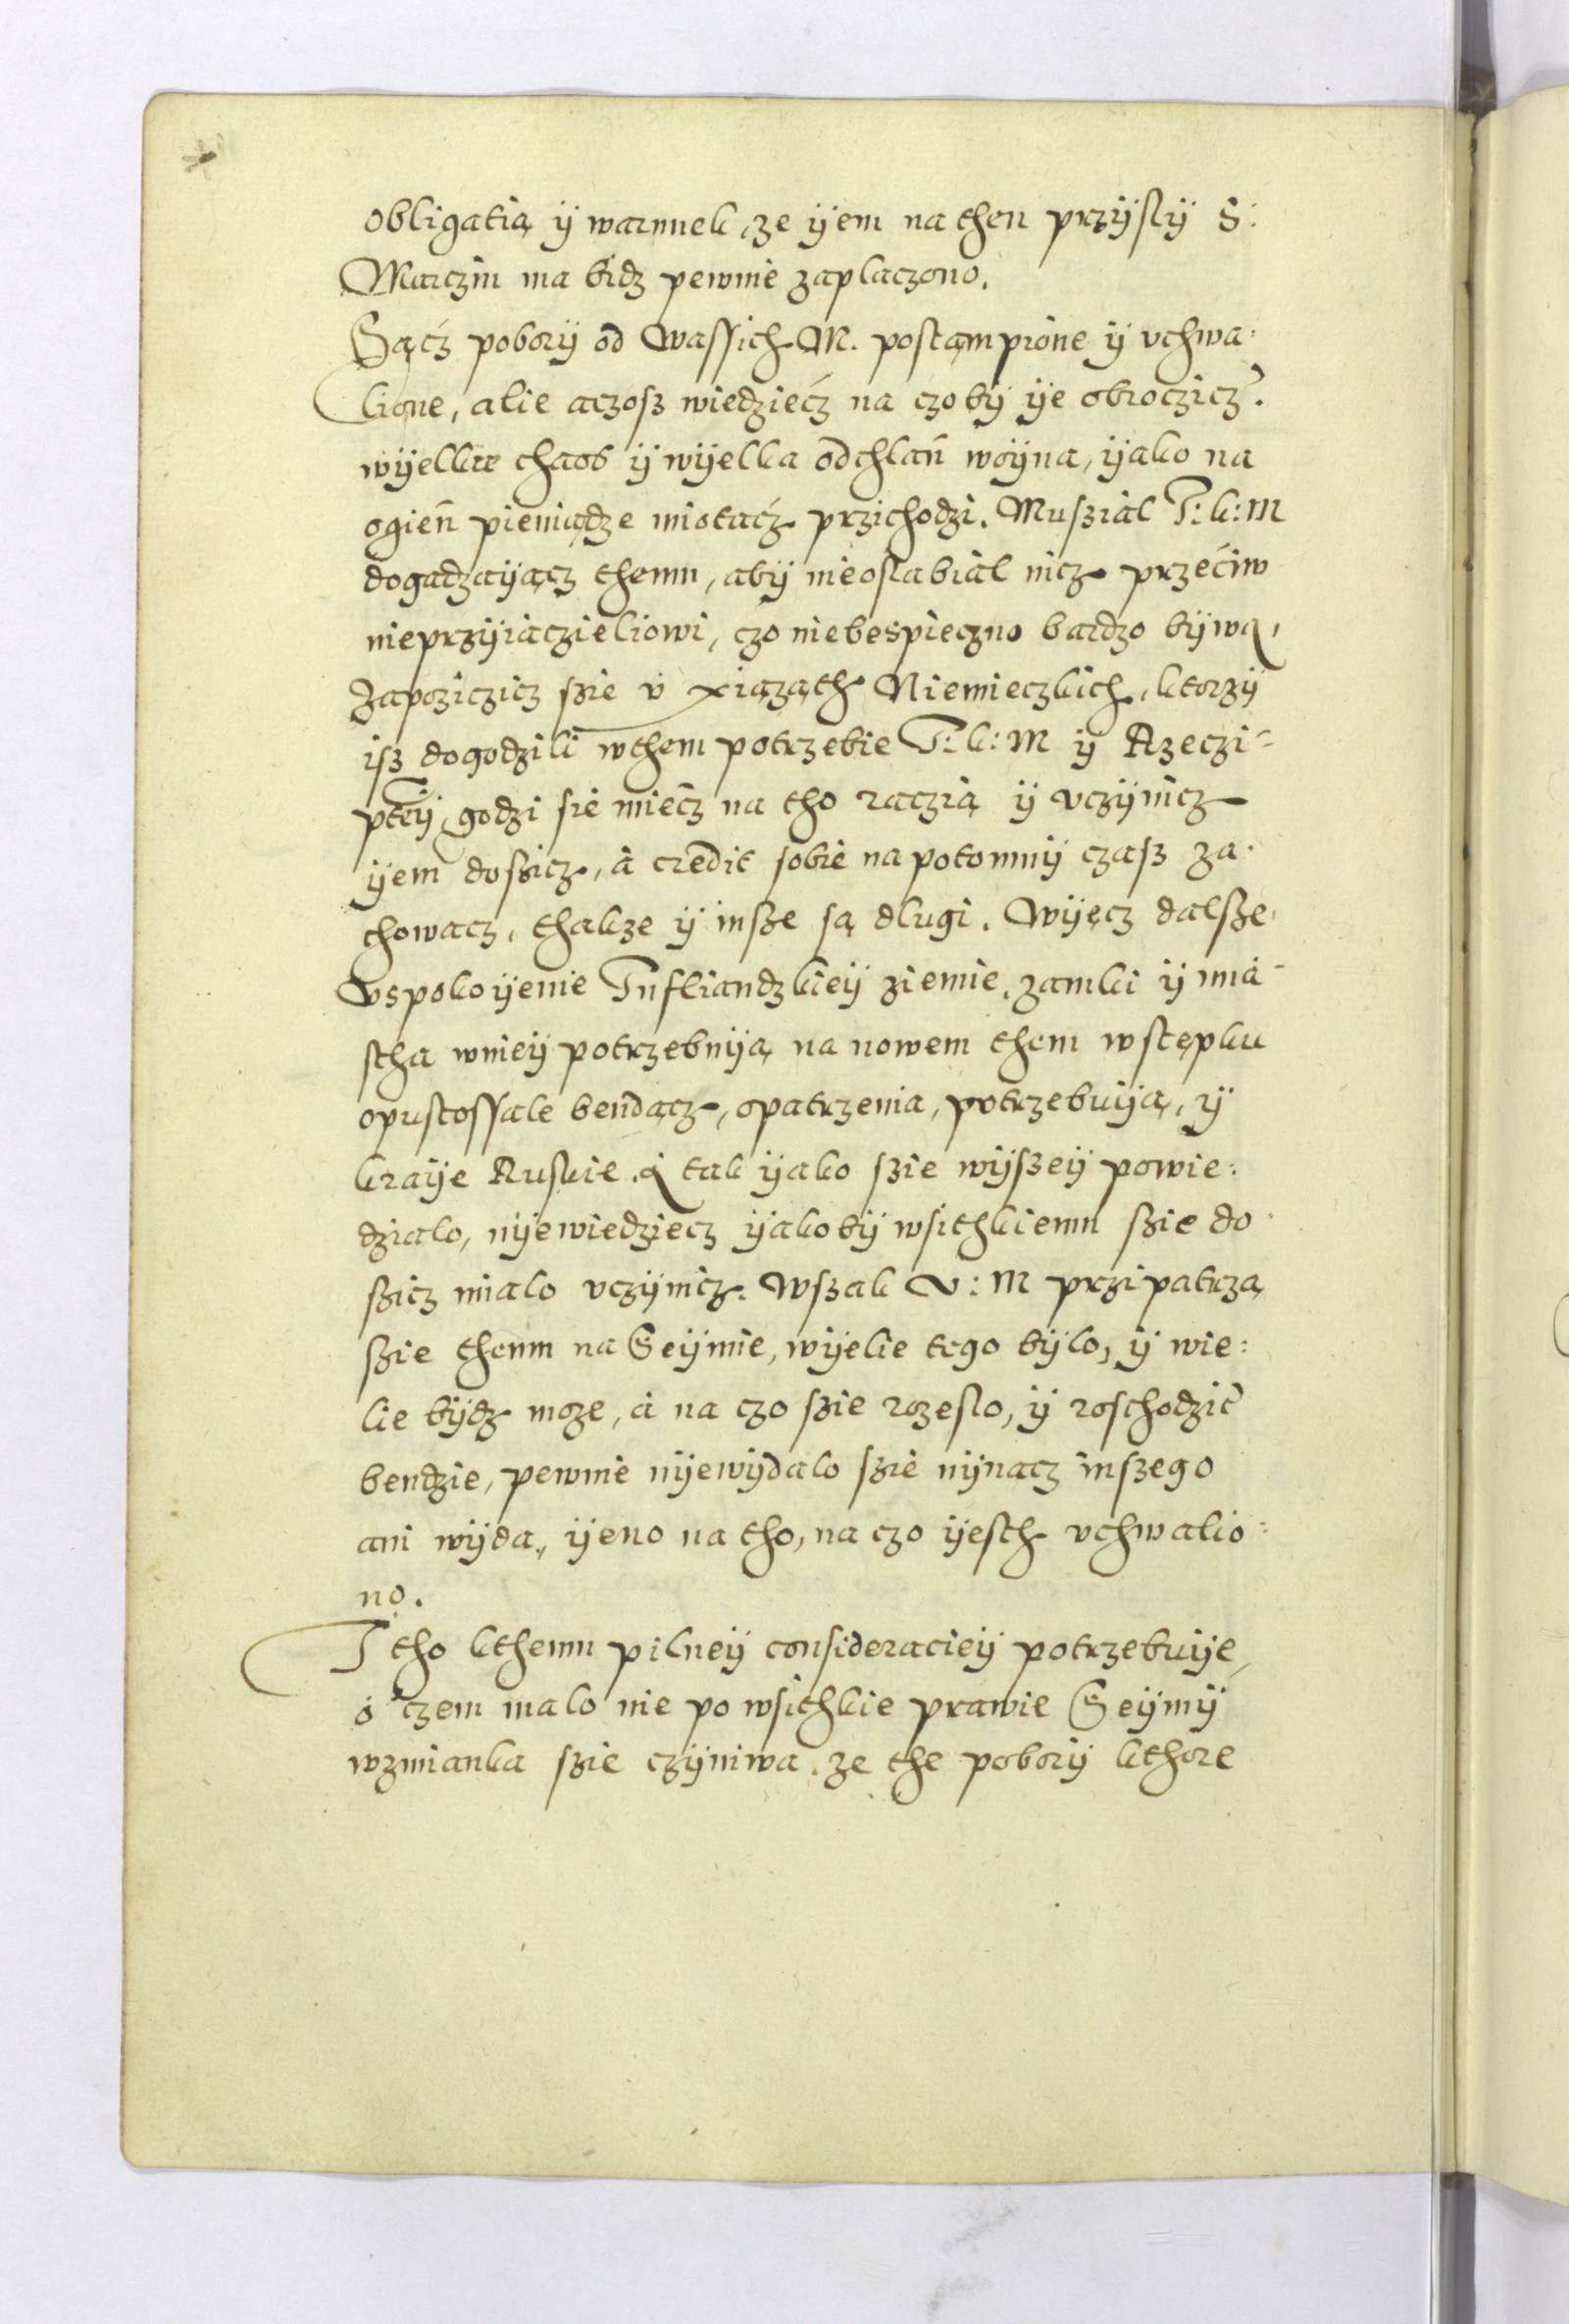 obligatią ÿ warunek, ze ÿem na then przÿslÿ S:
Marczin ma bidz pewnie zaplaczono.
Sącz poborÿ od Wassich M. postąmpione ÿ uchwa:
lione, alie aczosz wiedziecz na czo bÿ ÿe obroczicz.
wÿelkie chaos ÿ wÿelka odchlań woÿna, ÿako na
ogień pieniądze miotacz przichodzi. Musziàl J: k: M
dogadzaÿącz themu, abÿ nieoslabiàl nicz przeciw
nieprzÿiàczieliowi, czo niebespieczno bardzo bÿwa,
Zapoziczicz szie ù xiąząth Niemieczkich, ktorzÿ
isz dogodzili wthem potrzebie J: k: M ÿ Rzeczi-
pteÿ, godzi sie miecz na tho raczią ÿ uczÿnicz
ÿem dosicz, à credit sobie na potomnÿ czasz za-
chowacz, thakze ÿ insze są dlugi. Wÿęcz dalsze
Uspokoÿenie Jnfliandzkieÿ ziemie, zamki ÿ mia-
stha wnieÿ potrzebuÿą na nowem them wstępku
opustossale bendącz, opatrzenia, potrzebuÿą, ÿ
kraÿe Ruskie. A tak ÿako szie wÿszeÿ powie:
dzialo, nÿewiedziecz ÿakobÿ wsithkiemu szie do
szicz mialo uczÿnicz. Wszak V: M przipatrzą
szie themu na Seÿmie, wÿelie tego bÿlo, ÿ wie:
lie bÿdz moze, à na czo szie rozeslo, ÿ roschodzić
bendzie, pewnie nÿewÿdalo szie nÿnacz inszego
ani wÿda, ÿeno na tho, na czo ÿesth uchwalio:
no.
J tho kthemu pilneÿ consideracieÿ potrzebuÿe,
ò czem malo nie po wsithkie prawie Seÿmÿ
wzmianka szie czÿniwa. ze the poborÿ kthore